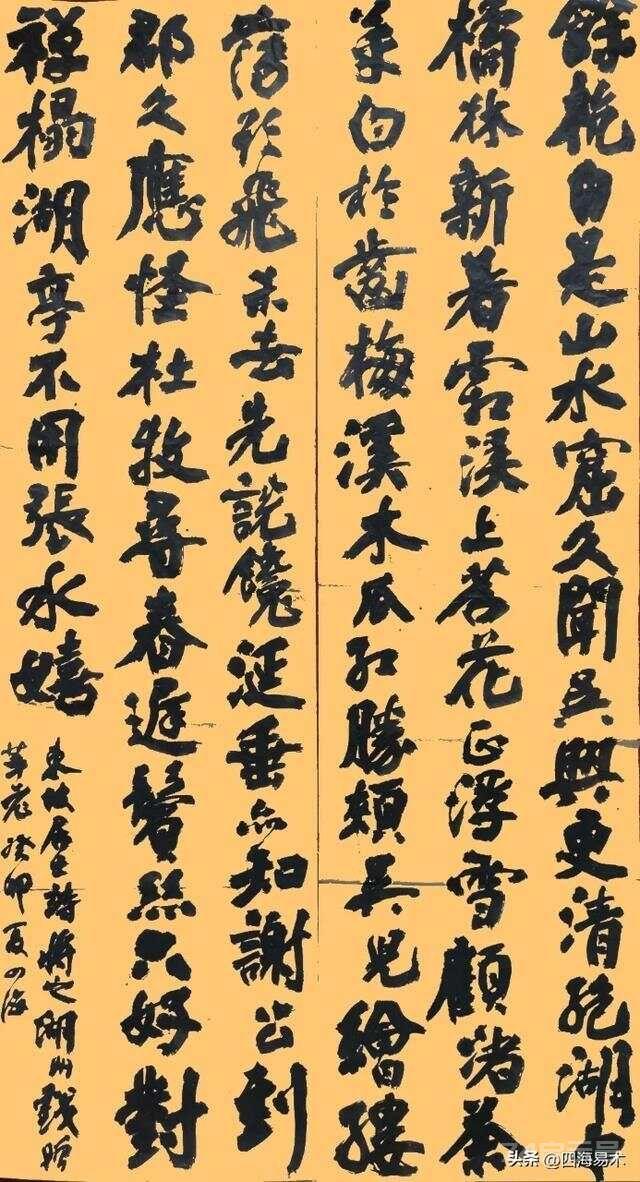 餘杭自是山水窟久聞吳興更清絕湖中
橘林新著霜溪上苕花正浮雪顧渚茶
芽白於齒梅溪木瓜紅勝頰吳兒繪縷
薄欲飛未去先說饞涎垂亦知謝公到
郡久應怪杜牧尋春遲鬢絲只好對
禪榻湖亭不用張水嬉
東坡居士詩將之湖州戲贈
莘老癸卯夏四海
头条 @四海易术